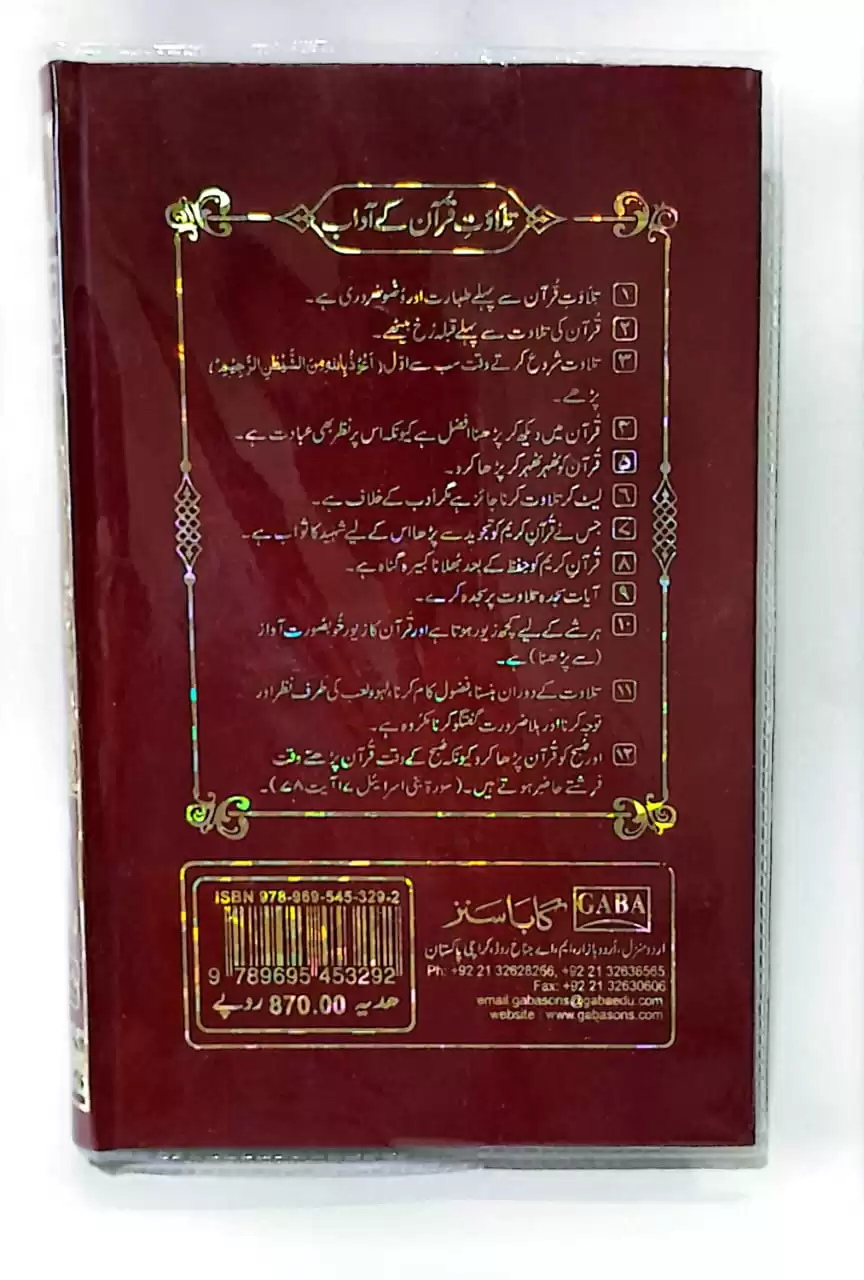 تلاوتِ قُرآن کے آداب
۱ تلاوتِ قُرآن سے پہلے طہارت اور وُضو ضروری ہے۔
۲ قُرآن کی تلاوت سے پہلے قبلہ رُخ بیٹھے۔
۳ تلاوت شروع کرتے وقت سب سے اوّل (اَعُوْذُ بِاللهِ مِنَ الشَّيْطٰنِ الرَّجِيْمِ)
پڑھے۔
۴ قُرآن میں دیکھ کر پڑھنا افضل ہے کیونکہ اس پر نظر بھی عبادت ہے۔
۵ قُرآن کو ٹھہر ٹھہر کر پڑھا کرو۔
۶ لیٹ کر تلاوت کرنا جائز ہے مگر ادب کے خلاف ہے۔
۷ جس نے قُرآنِ کریم کو تجوید سے پڑھا اس کے لیے شہید کا ثواب ہے۔
۸ قُرآنِ کریم کو حفظ کے بعد بُھلانا کبیرہ گناہ ہے۔
۹ آیات سجدہ تلاوت پر سجدہ کرے۔
۱۰ ہر شے کے لیے کچھ زیور ہوتا ہے اور قُرآن کا زیور خُوبصورت آواز
(سے پڑھنا) ہے۔
۱۱ تلاوت کے دوران ہنسنا، فضول کام کرنا، لہو ولعب کی طرف نظر اور
توجہ کرنا اور بلا ضرورت گفتگو کرنا مکروہ ہے۔
۱۲ اور صُبح کو قُرآن پڑھا کرو کیونکہ صُبح کے وقت قُرآن پڑھتے وقت
فرشتے حاضر ہوتے ہیں۔ (سورۃ بنی اسرائیل ۱۷ آیت ۷۸)۔
GABA گابا سنز
اردو منزل، اُردو بازار، ایم۔اے جناح روڈ، کراچی پاکستان
Ph: +92 21 32628266, +92 21 32636565
Fax: +92 21 32630606
email.gabasons@gabaedu.com
website : www.gabasons.com
ISBN 978-969-545-329-2
9 789695 453292
ھدیہ 870.00 روپے